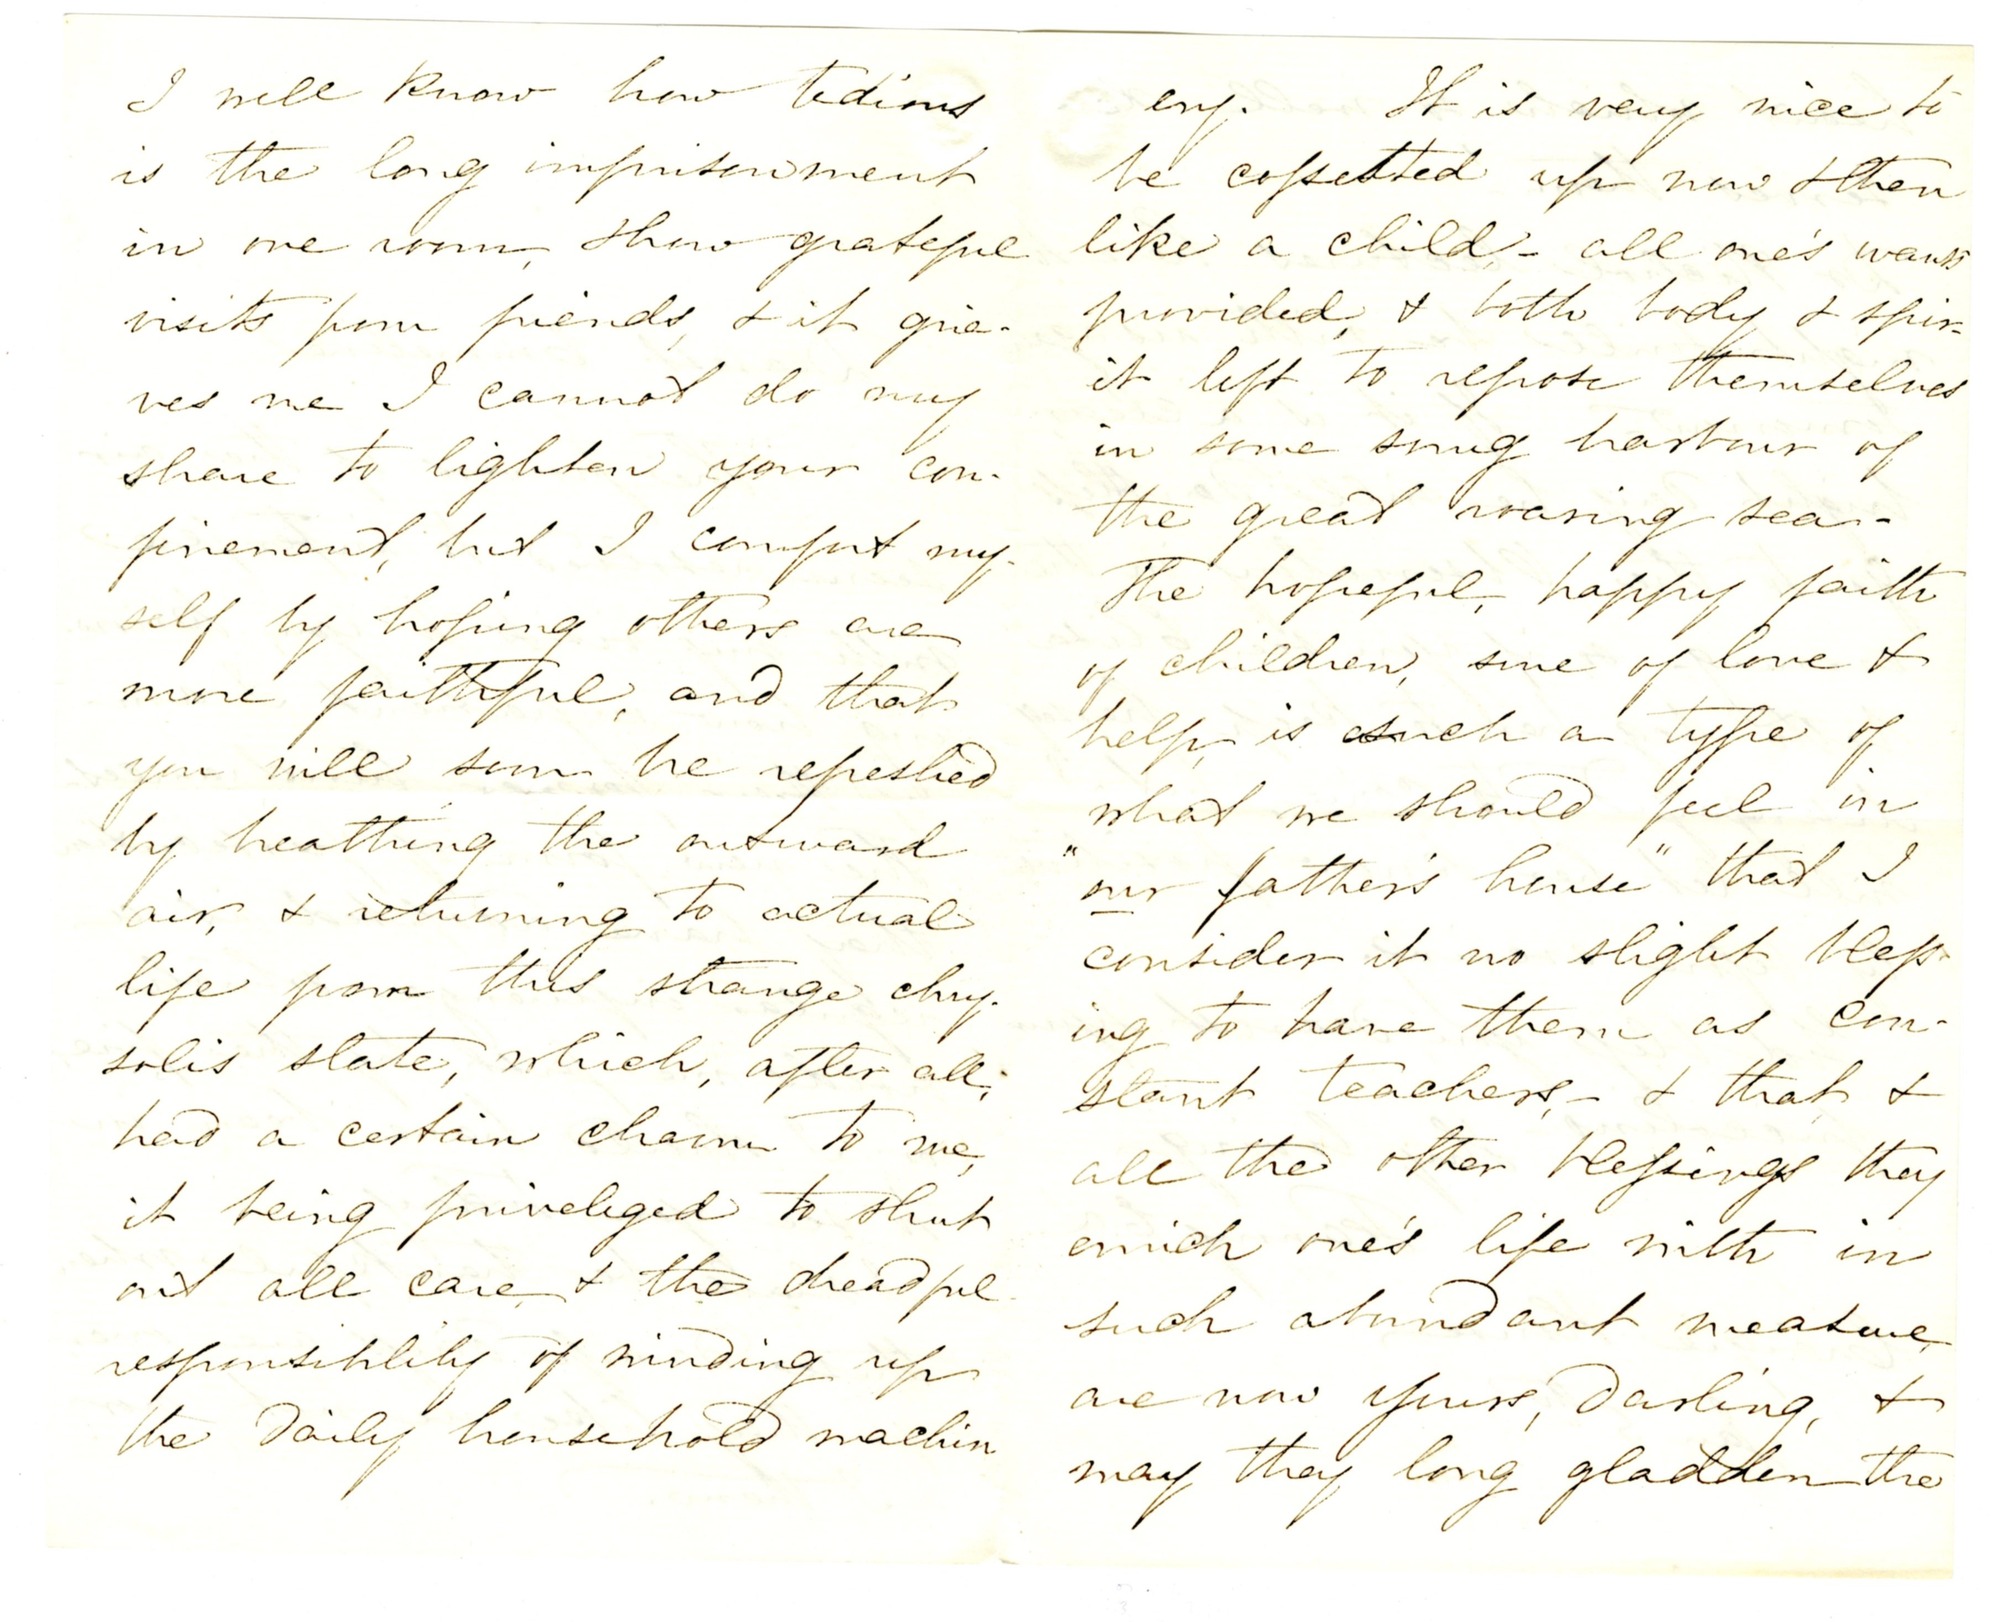 I well know how tedious
is the long imprisonment
in one room, & how grateful
visits from friends, & it grie-
ves me I cannot do my
share to lighten your con-
finement, but I comfort my-
self by hoping others are
more faithful, and that
you will soon be refreshed
by breathing the outward
air, & returning to actual
life from this strange chry-
salis state, which, after all,
had a certain charm to me,
it being priveleged to shut
out all care & the dreadful
responsibility of winding up
the daily household machin
ery. It is very nice to
be cossetted up now & then
like a child, - all one's wants
provided, & both body & spir-
it left to repose themselves
in some snug harbour of
the great roaring sea -
The hopeful, happy faith
of children, sure of love &
help, is such a type of
what we should feel in
"our father's house" that I
consider it no slight bless-
ing to have them as con-
stant teachers, - & that &
all the other blessings they
enrich one's life with in
such abundant measure,
are now yours, darling, &
may they long gladden the